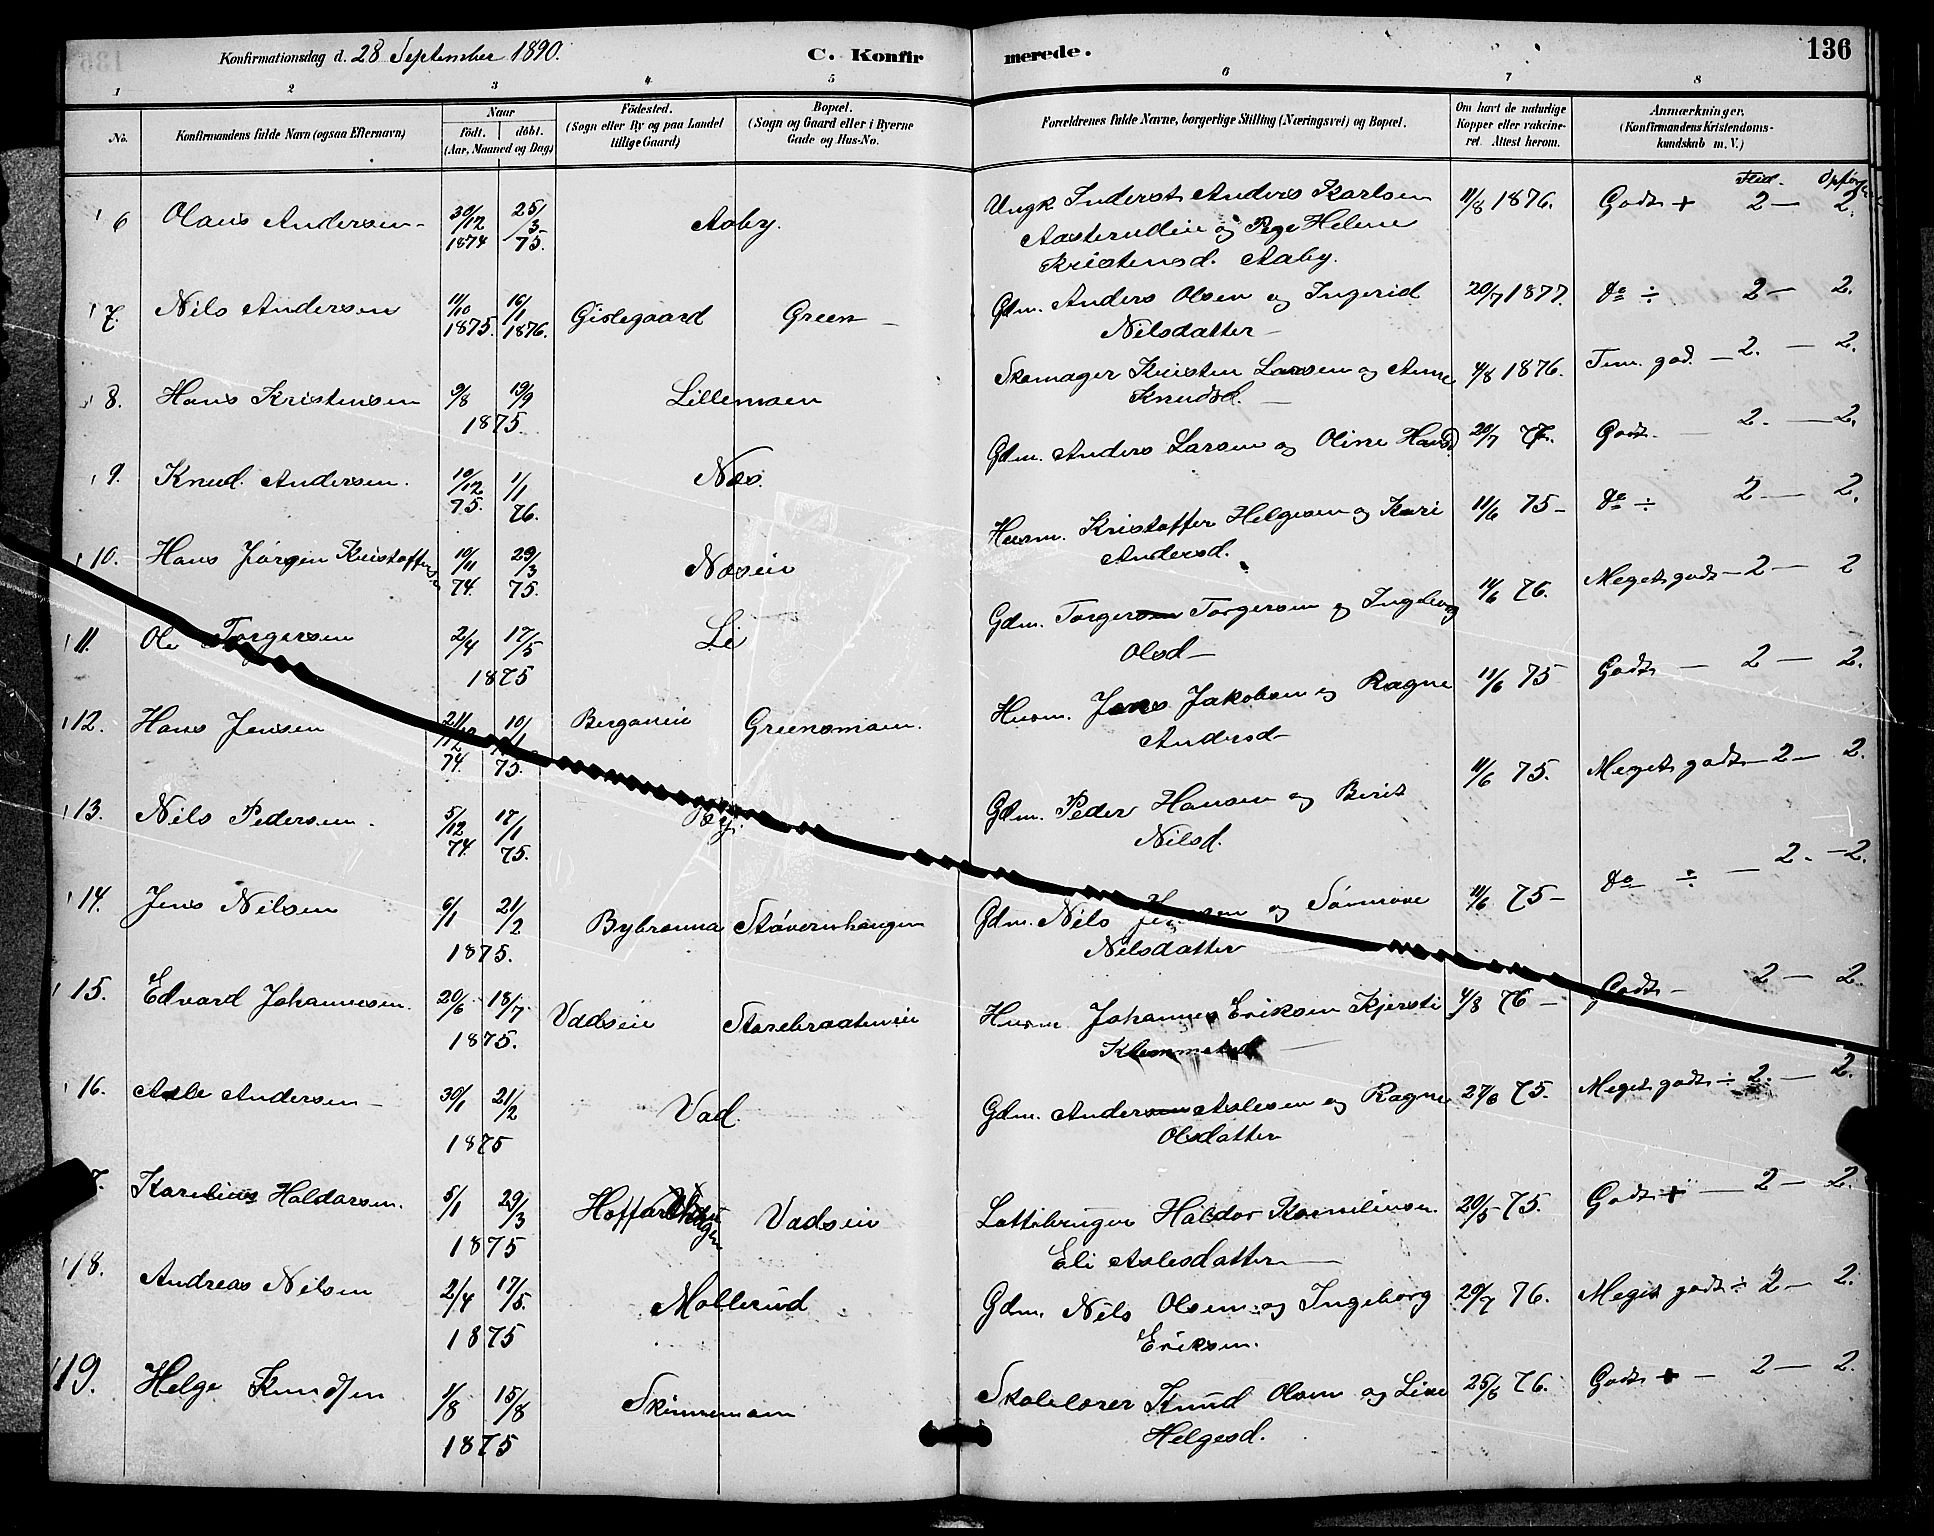 Konfirmationsdag d. 28 September 1890.
C. Konfir merede.
136
1 2 3 4 5 6 7 8
No.
Konfirmandens fulde Navn (ogsaa Efternavn)
Naar
födt. döbt.
(Aar, Maaned og Dag)
Födested.
(Sogn eller By og paa Landet
tillige Gaard)
Bopæl.
(Sogn og Gaard eller i Byerne
Gade og Hus-No.
Forældrenes fulde Navne, borgerlige Stilling (Næringsvei) og Bopæl.
Om havt de naturlige
Kopper eller vakcine-
ret. Attest herom.
Anmærkninger,
(Konfirmandens Kristendoms-
kundskab m. V.)
Flid.
6 Olaus Andersen 30/12 1874 25/3 75. Aaby. Ungk Inderst Anders Karlsen 11/8 1876. Godt + 2 — 2.
Aasterudeie og Pige Helene
Kristensd. Aaby.
7. Nils Andersen 11/10 1875. 16/1 1876. Gislegaard Green — Gdm. Anders Olsen og Ingerid 20/7 1877. do ÷ 2 — 2.
Nilsdatter —
8. Hans Kristensen 9/8 19/9 1875. Lillemoen Skomager Kristen Larsen og Anne 4/8 1876. Tem. god. — 2. — 2.
Knudsd. —
9. Knud Andersen. 10/12 75. 1/1 76. Næs. Gdm. Anders Larsen og Oline Hansd 20/7 77. Godt. — 2. — 2.
10. Hans Jørgen Kristoffersen 10/11 74. 29/3 75. Næseie Husm. Kristoffer Helgesen og Kari 11/6 75 — do ÷ 2 — 2.
Andersd.
11. Ole Torgersen 2/4 17/5 1875 Li Gdm. Torger Torgersen og Ingeborg 14/6 76. Meget godt — 2 — 2
Olsd —
12. Hans Jensen 21/12 74. 10/1 75. Bergaeie Greensmoen. Husm. Jens Jakobsen og Ragne 11/6 75 Godt — 2 — 2.
Andersd —
13. Nils Pedersen. 5/12 74. 17/1 75. Gdm. Peder Hansen og Berit 11/6 75. Meget godt — 2 — 2.
Nilsd.
14. Jens Nilsen 6/1 21/2 1875. Bybraana Støvernhaugen Gdm. Nils Jensen og Sønnove 11/6 75 — do ÷ — 2. — 2.
Nilsdatter —
15. Edvard Johannesen. 20/6 18/7 1875. Vadseie Storebraateneie Husm. Johannes Eriksen Kjersti 4/8 76 — Godt — 2 — 2.
Klemmetsd —
16. Asle Andersen — 30/1 21/2 1875 Vad. Gdm. Anders Aslesen og Ragne 27/6 75. Meget godt ÷ 2. — 2.
Olsdatter
7. Karelius Haldorsen. 5/1 29/3 1875 Vadseie Haldor 20/5 75. Godt + — 2 — 2.
Eli Aslesdatter —
18. Andreas Nilsen 2/4 17/5. 1875 Møllerud Gdm. Nils Olsen og Ingeborg 29/7 76. Meget godt ÷ 2 — 2.
Eriksen.
19. Helge Knudsen 1/8 15/8 1875 Skinnemoen Skolelærer Knud Olsen og Live 25/6 76. Godt + — 2 — 2.
Helgesd.